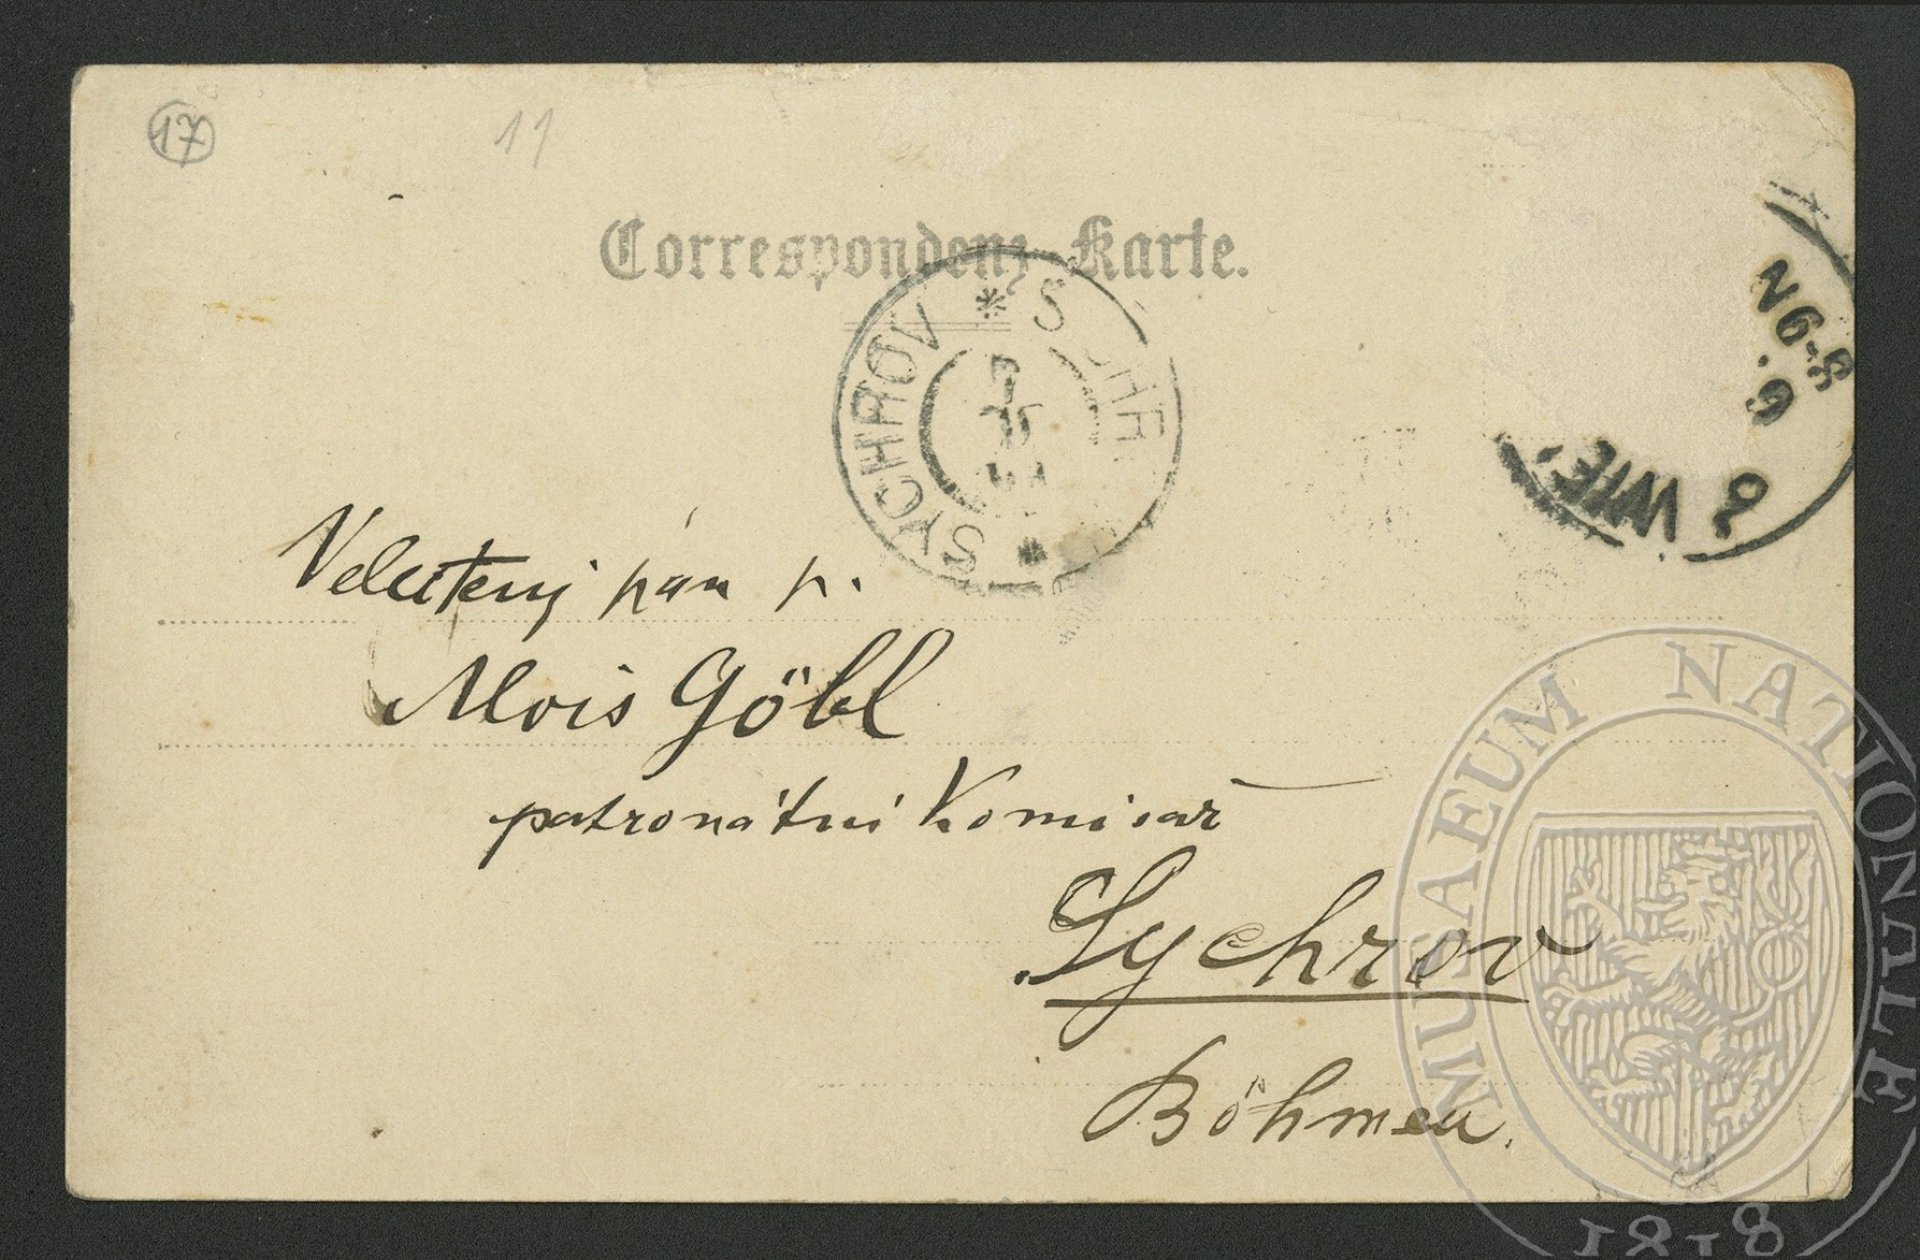 17
11
Correspondenz-Karte.
SYCHROV * SYCHROV *
WIE
Velectěný pán p.
Alois Göbl
patronátní Komisař
Sychrov
Böhmen.
MUSAEUM NATIONALE
1818